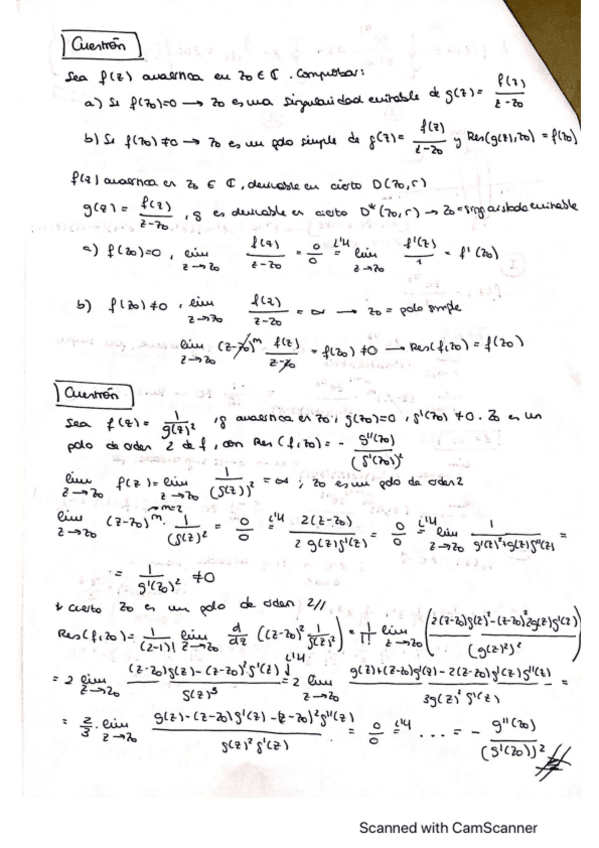 Cuestión
Sea f(z) analítica en z₀ ∈ ℂ. Comprobar:
a) Si f(z₀)=0 → z₀ es una singularidad evitable de g(z) = f(z)/(z-z₀)
b) Si f(z₀) ≠ 0 → z₀ es un polo simple de g(z) = f(z)/(z-z₀) y Res(g(z), z₀) = f(z₀)
f(z) analítica en z₀ ∈ ℂ, derivable en cierto D(z₀,r)
g(z) = f(z)/(z-z₀), g es derivable en cierto D*(z₀,r) → z₀ = sing. evitable
a) f(z₀)=0, lim z→z₀ f(z)/(z-z₀) = 0/0 =L'H lim z→z₀ f'(z)/1 = f'(z₀)
b) f(z₀) ≠ 0, lim z→z₀ f(z)/(z-z₀) = ∞ → z₀ = polo simple
lim z→z₀ (z-z₀)^m f(z)/(z-z₀) = f(z₀) ≠ 0 → Res(f,z₀) = f(z₀)
Cuestión
Sea f(z) = 1/g(z)², g analítica en z₀, g(z₀)=0, g'(z₀) ≠ 0. z₀ es un
polo de orden 2 de f, con Res(f,z₀) = - g''(z₀)/(g'(z₀))²
lim z→z₀ f(z) = lim z→z₀ 1/(g(z))² = ∞; z₀ es un polo de orden 2
lim z→z₀ (z-z₀)^m · 1/(g(z))² = 0/0 =L'H 2(z-z₀)/(2g(z)g'(z)) = 0/0 =L'H lim z→z₀ 1/(g'(z)²+g(z)g''(z)) =
= 1/g'(z₀)² ≠ 0
cierto z₀ es un polo de orden 2//
Res(f,z₀) = 1/(2-1)! lim z→z₀ d/dz ((z-z₀)² 1/g(z)²) = 1/1! lim z→z₀ (2(z-z₀)g(z)²-(z-z₀)²2g(z)g'(z))/(g(z)²)²
= 2 lim z→z₀ ((z-z₀)g(z)-(z-z₀)²g'(z))/g(z)³ =L'H 2 lim z→z₀ (g(z)+(z-z₀)g'(z)-2(z-z₀)g'(z)g''(z))/(3g(z)²g'(z)) =
= 2/3 · lim z→z₀ (g(z)-(z-z₀)g'(z)-(z-z₀)²g''(z))/(g(z)²g'(z)) = 0/0 =L'H ... = - g''(z₀)/(g'(z₀))²
Scanned with CamScanner